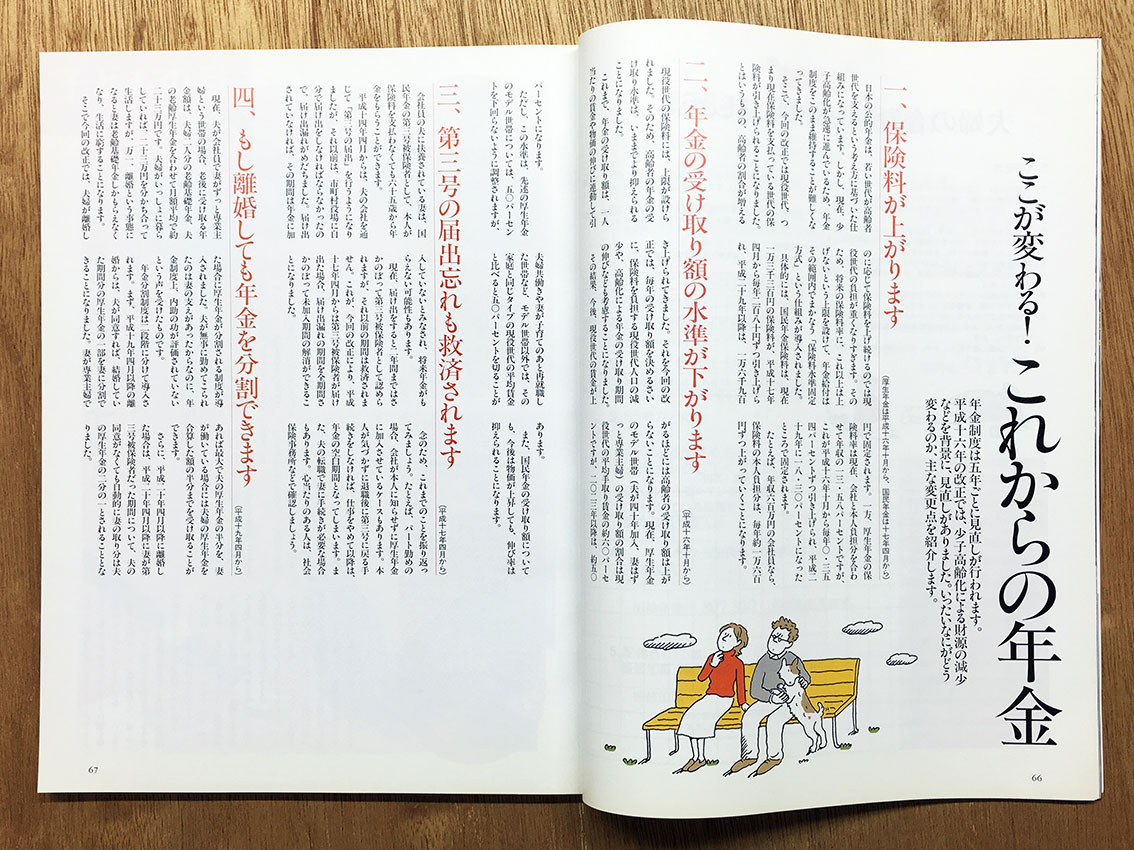 ここが変わる！これからの年金
年金制度は五年ごとに見直しが行われます。
平成十六年の改正では、少子高齢化による財源の減少
などを背景に、見直しがありました。いったいなにがどう
変わるのか、主な変更点を紹介します。
一、保険料が上がります
（厚生年金は平成十六年十月から、国民年金は十七年四月から）
日本の公的年金は、若い世代が高齢者
世代を支えるという考え方に基づいた仕
組みになっています。しかし、現在、少
子高齢化が急速に進んでいるため、年金
制度をこのまま維持することが難しくな
ってきました。
そこで、今回の改正では現役世代、つ
まり現在保険料を支払っている世代の保
険料が引き上げられることになりました。
とはいうものの、高齢者の割合が増える
のに応じて保険料を上げ続けるのでは現
役世代の負担が重くなりすぎます。その
ため、将来の保険料率に、これ以上は上
げないという上限を設けて、年金給付は
その範囲内でまかなう、保険料水準固定
方式という仕組みが導入されました。
具体的には、国民年金保険料は、現在
一万三千三百円の保険料が、平成十七年
四月から毎年二百八十円ずつ引き上げら
れ、平成二十九年以降は、一万六千九百
円で固定されます。一方、厚生年金の保
険料率は現在、会社と本人負担分を合わ
せて年収の一三・五八パーセントですが、
これが平成十六年十月から毎年〇・三五
四パーセントずつ引き上げられ、平成二
十九年に一八・三〇パーセントになった
ところで固定されます。
たとえば、年収六百万円の会社員なら、
保険料の本人負担分は、毎年約一万六百
円ずつ上がっていくことになります。
二、年金の受け取り額の水準が下がります
（平成十六年十月から）
現役世代の保険料には、上限が設けら
れました。そのため、高齢者の年金の受
け取り水準は、いままでより抑えられる
ことになりました。
これまで、年金の受け取り額は、一人
当たりの賃金や物価の伸びに連動して引
き上げられてきました。それを今回の改
正では、毎年の受け取り額を決めるさい
に、保険料を負担する現役世代人口の減
少や、高齢化による年金の受け取り期間
の伸びなども考慮することになりました。
その結果、今後、現役世代の賃金が上
がるほどには高齢者の受け取り額は上が
らないことになります。現在、厚生年金
のモデル世帯（夫が四十年加入、妻はず
っと専業主婦）の受け取り額の割合は現
役世代の平均手取り賃金の約六〇パーセ
ントですが、二〇二三年以降は、約五〇
パーセントになります。
ただし、この水準は、先述の厚生年金
のモデル世帯については、五〇パーセン
トを下回らないように調整されますが、
夫婦共働きや妻が子育てのあと再就職し
た世帯など、モデル世帯以外では、その
家庭と同じタイプの現役世代の平均賃金
と比べると五〇パーセントを切ることが
あります。
また、国民年金の受け取り額について
も、今後は物価が上昇しても、伸び率は
抑えられることになります。
三、第三号の届出忘れも救済されます
（平成十七年四月から）
会社員の夫に扶養されている妻は、国
民年金の第三号被保険者として、本人が
保険料を支払わなくても六十五歳から年
金をもらうことができます。
平成十四年四月からは、夫の会社を通
じて「第三号の届出」を行うようになり
ましたが、それ以前は、市町村役場に自
分で届け出をしなければならなかったの
で、届け出漏れがめだちました。届け出
されていなければ、その期間は年金に加
入していないとみなされ、将来年金がも
らえない可能性もあります。
現在、届け出をすると二年間まではさ
かのぼって第三号被保険者として認めら
れますが、それ以前の期間は救済されま
せん。これが、今回の改正により、平成
十七年四月からは第三号被保険者が届け
出た場合、届け出漏れの期間を全期間さ
かのぼって未加入期間の解消ができるこ
とになりました。
念のため、これまでのことを振り返っ
てみましょう。たとえば、パート勤めの
場合、会社が本人に知らせずに厚生年金
に加入させているケースもあります。本
人が気づかずに退職後に第三号に戻る手
続きをしなければ、仕事をやめて以降は、
年金の空白期間となってしまいます。ま
た、夫の転職で妻に手続きが必要な場合
もあります。心当たりのある人は、社会
保険事務所などで確認しましょう。
四、もし離婚しても年金を分割できます
（平成十九年四月から）
現在、夫が会社員で妻がずっと専業主
婦という世帯の場合、老後に受け取る年
金額は、夫婦二人分の老齢基礎年金、夫
の老齢厚生年金を合わせて月額平均で約
二十三万円です。夫婦がいっしょに暮ら
していれば、二十三万円を分かち合って
生活しますが、万一、離婚という事態に
なると妻は老齢基礎年金しかもらえなく
なり、生活に窮することになります。
そこで今回の改正では、夫婦が離婚し
た場合に厚生年金が分割される制度が導
入されました。夫が無事に勤めてこられ
たのは妻の支えがあったからなのに、年
金制度上、内助の功が評価されていない
という声を受けたものです。
年金分割制度は二段階に分けて導入さ
れます。まず、平成十九年四月以降の離
婚からは、夫が同意すれば、結婚してい
た期間分の厚生年金の一部を妻に分割で
きることになりました。妻が専業主婦で
あれば最大で夫の厚生年金の半分を、妻
が働いている場合には夫婦の厚生年金を
合算した額の半分までを受け取ることが
できます。
さらに、平成二十年四月以降に離婚し
た場合は、平成二十年四月以降に妻が第
三号被保険者だった期間について、夫の
同意がなくても自動的に妻の取り分は夫
の厚生年金の二分の一とされることとな
りました。
66
67